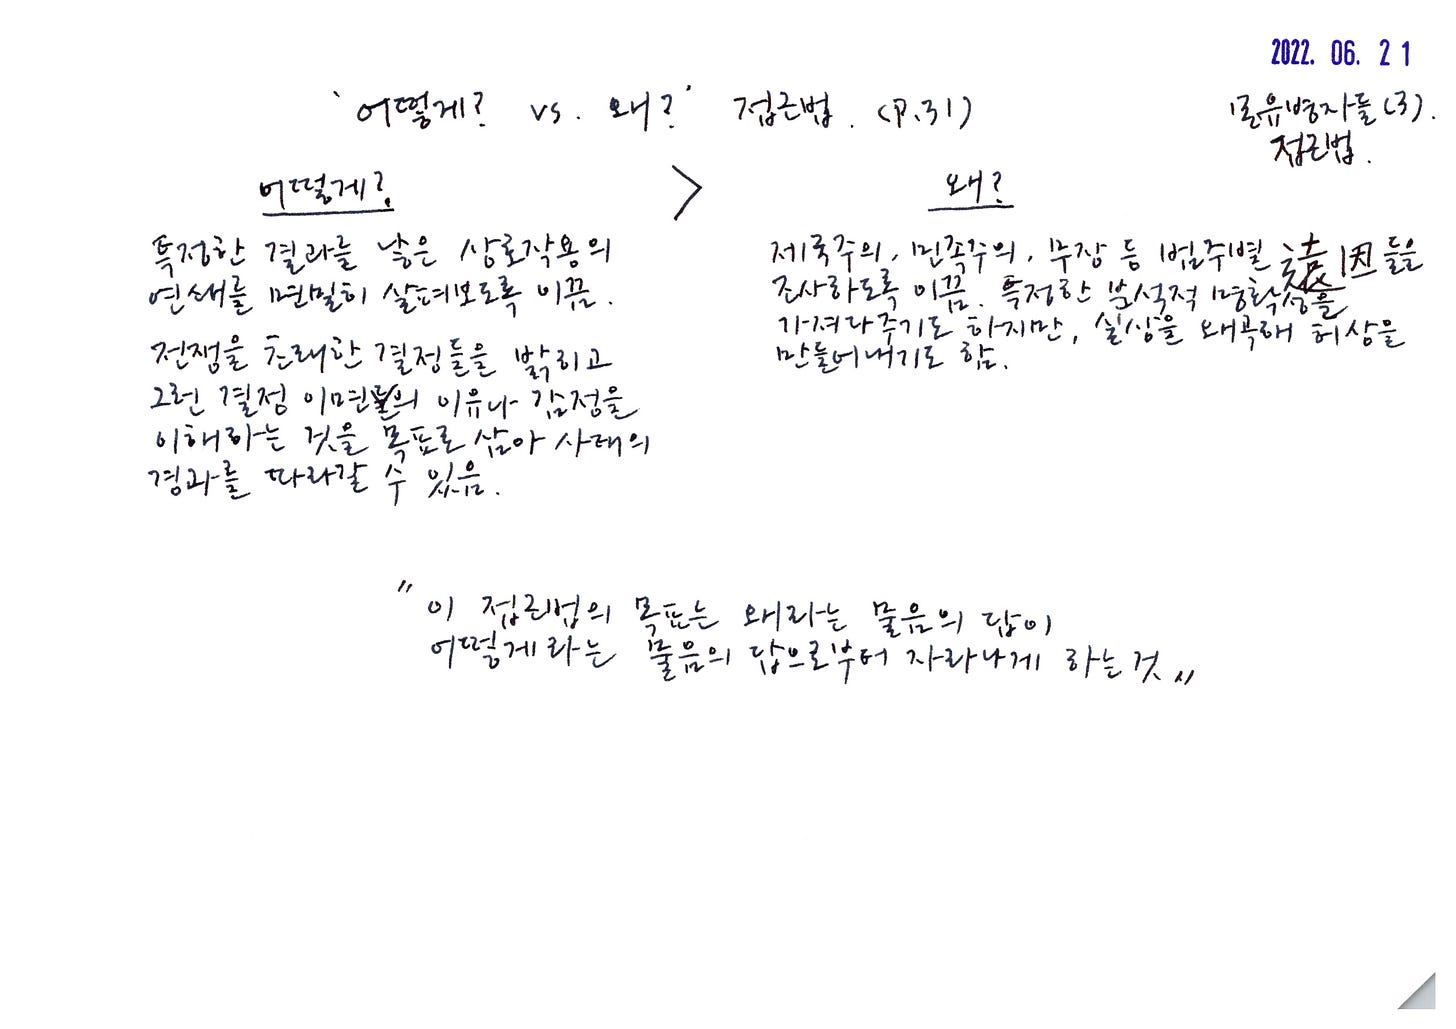 2022. 06. 21
'어떻게? vs. 왜?' 접근법. (P.31)
몽유병자들(3).
접근법.
어떻게?
>
왜?
특정한 결과를 낳은 상호작용의
연쇄를 면밀히 살펴보도록 이끔.
전쟁을 초래한 결정들을 밝히고
그런 결정 이면의 이유나 감정을
이해하는 것을 목표로 삼아 사태의
경과를 따라갈 수 있음.
제국주의, 민족주의, 무장 등 범주별 遠因들을
조사하도록 이끔. 특정한 분석적 명확성을
가져다주기도 하지만, 실상을 왜곡해 허상을
만들어내기도 함.
"이 접근법의 목표는 왜라는 물음의 답이
어떻게라는 물음의 답으로부터 자라나게 하는 것"